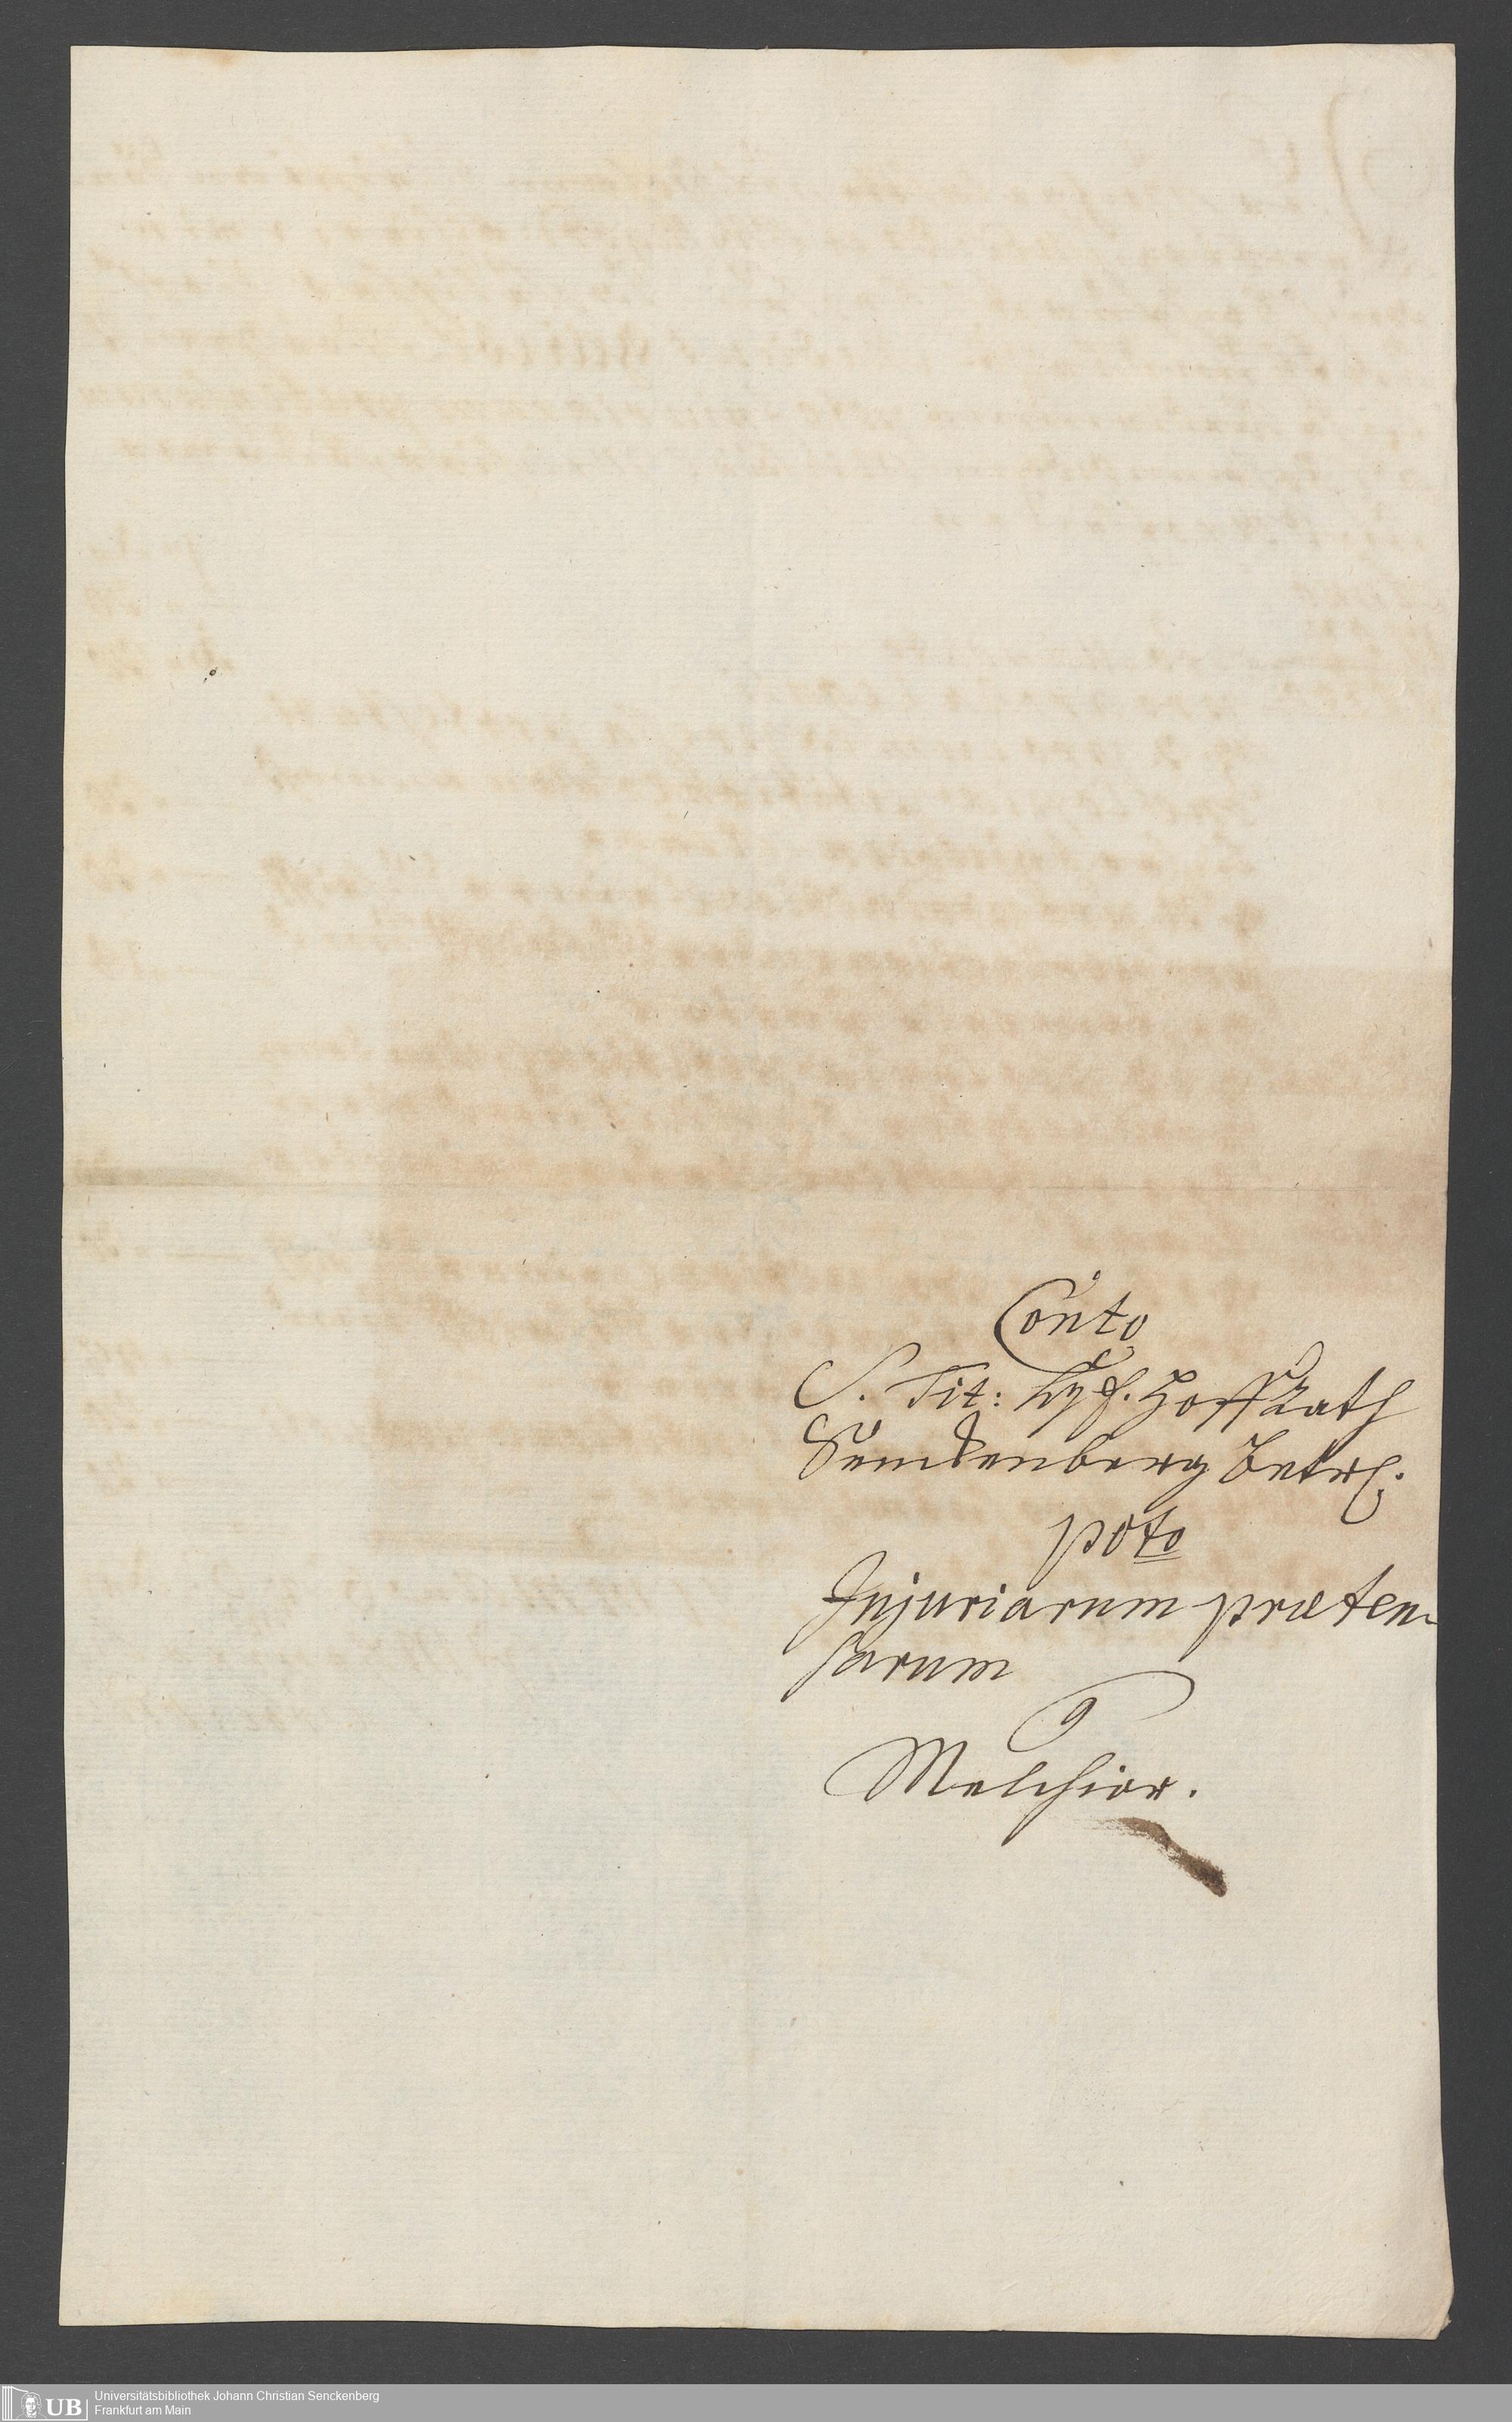 Conto
S. Tit: Hoff Rath
Senckenberg betrl.
pcto
Injuriarum præten-
sarum
Melchior.
UB
Universitätsbibliothek Johann Christian Senckenberg
Frankfurt am Main